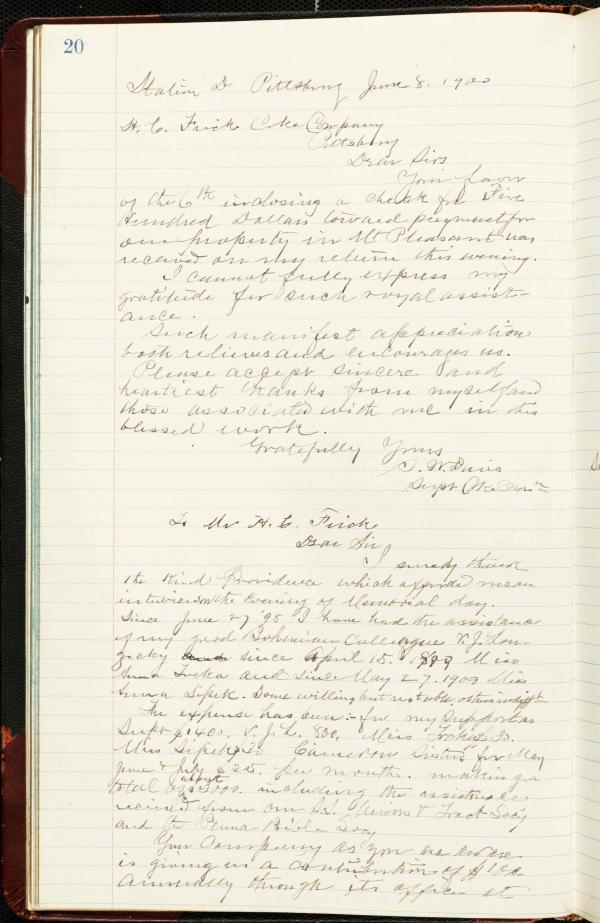 20
Station D Pittsburg June 8. 1900
H. C. Frick Coke Company
Pittsburg
Dear Sirs
Your favor
of the 6th inclosing a check for Five
Hundred Dollars toward payment for
our property in Mt Pleasant was
received on my return this evening.
I cannot fully express my
gratitude for such royal assist-
ance.
Such manifest appreciation
both relieves and encourages us.
Please accept sincere and
heartiest thanks from myself and
those associated with me in this
blessed work.
Gratefully Yours
Supt Coke
To Mr H. C. Frick
Dear Sir
I surely thank
the Kind Providence which afforded me an
interview on the evening of Memorial day.
Since June 27 '98 I have had the assistance
of my good Bohemian Colleague V. J. Lou-
zecky and since April 15. Miss
Anna and since May 27. 1900 Miss
Anna Sipek. Some willing but not able, others
The expense has been :- for my Support as
Supt $1400. V. J. L. 800, Miss
Miss Sipek 30 Cameron Sisters for May
June & July $25. per month. making a
total of about including the assistance
received from our Mission & Tract Socy
and the Penna Bible Socy
Your Company as you are aware
is giving us a contribution of
annually through its office at